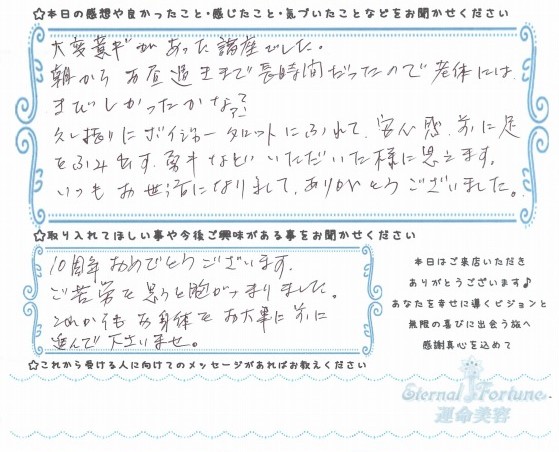 ☆本日の感想や良かったこと・感じたこと・気づいたことなどをお聞かせください
大変意義があった講座でした。
朝からお昼過ぎまで長時間だったので老体には
きびしかったかなァ?
久し振りにボイジャータロットにふれて、安心感、前に足
をふみ出す勇気などいただいた様に思えます。
いつもお世話になりまして、ありがとうございました。
☆取り入れてほしい事や今後ご興味がある事をお聞かせください
10周年おめでとうございます。
ご苦労を思うと胸がつまりました。
これからもお身体をお大事に前に
進んで下さいませ。
本日はご来店いただき
ありがとうございます♪
あなたを幸せに導くビジョンと
無限の喜びに出会う旅へ
感謝真心を込めて
☆これから受ける人に向けてのメッセージがあればお教えください
Eternal Fortune
運命美容